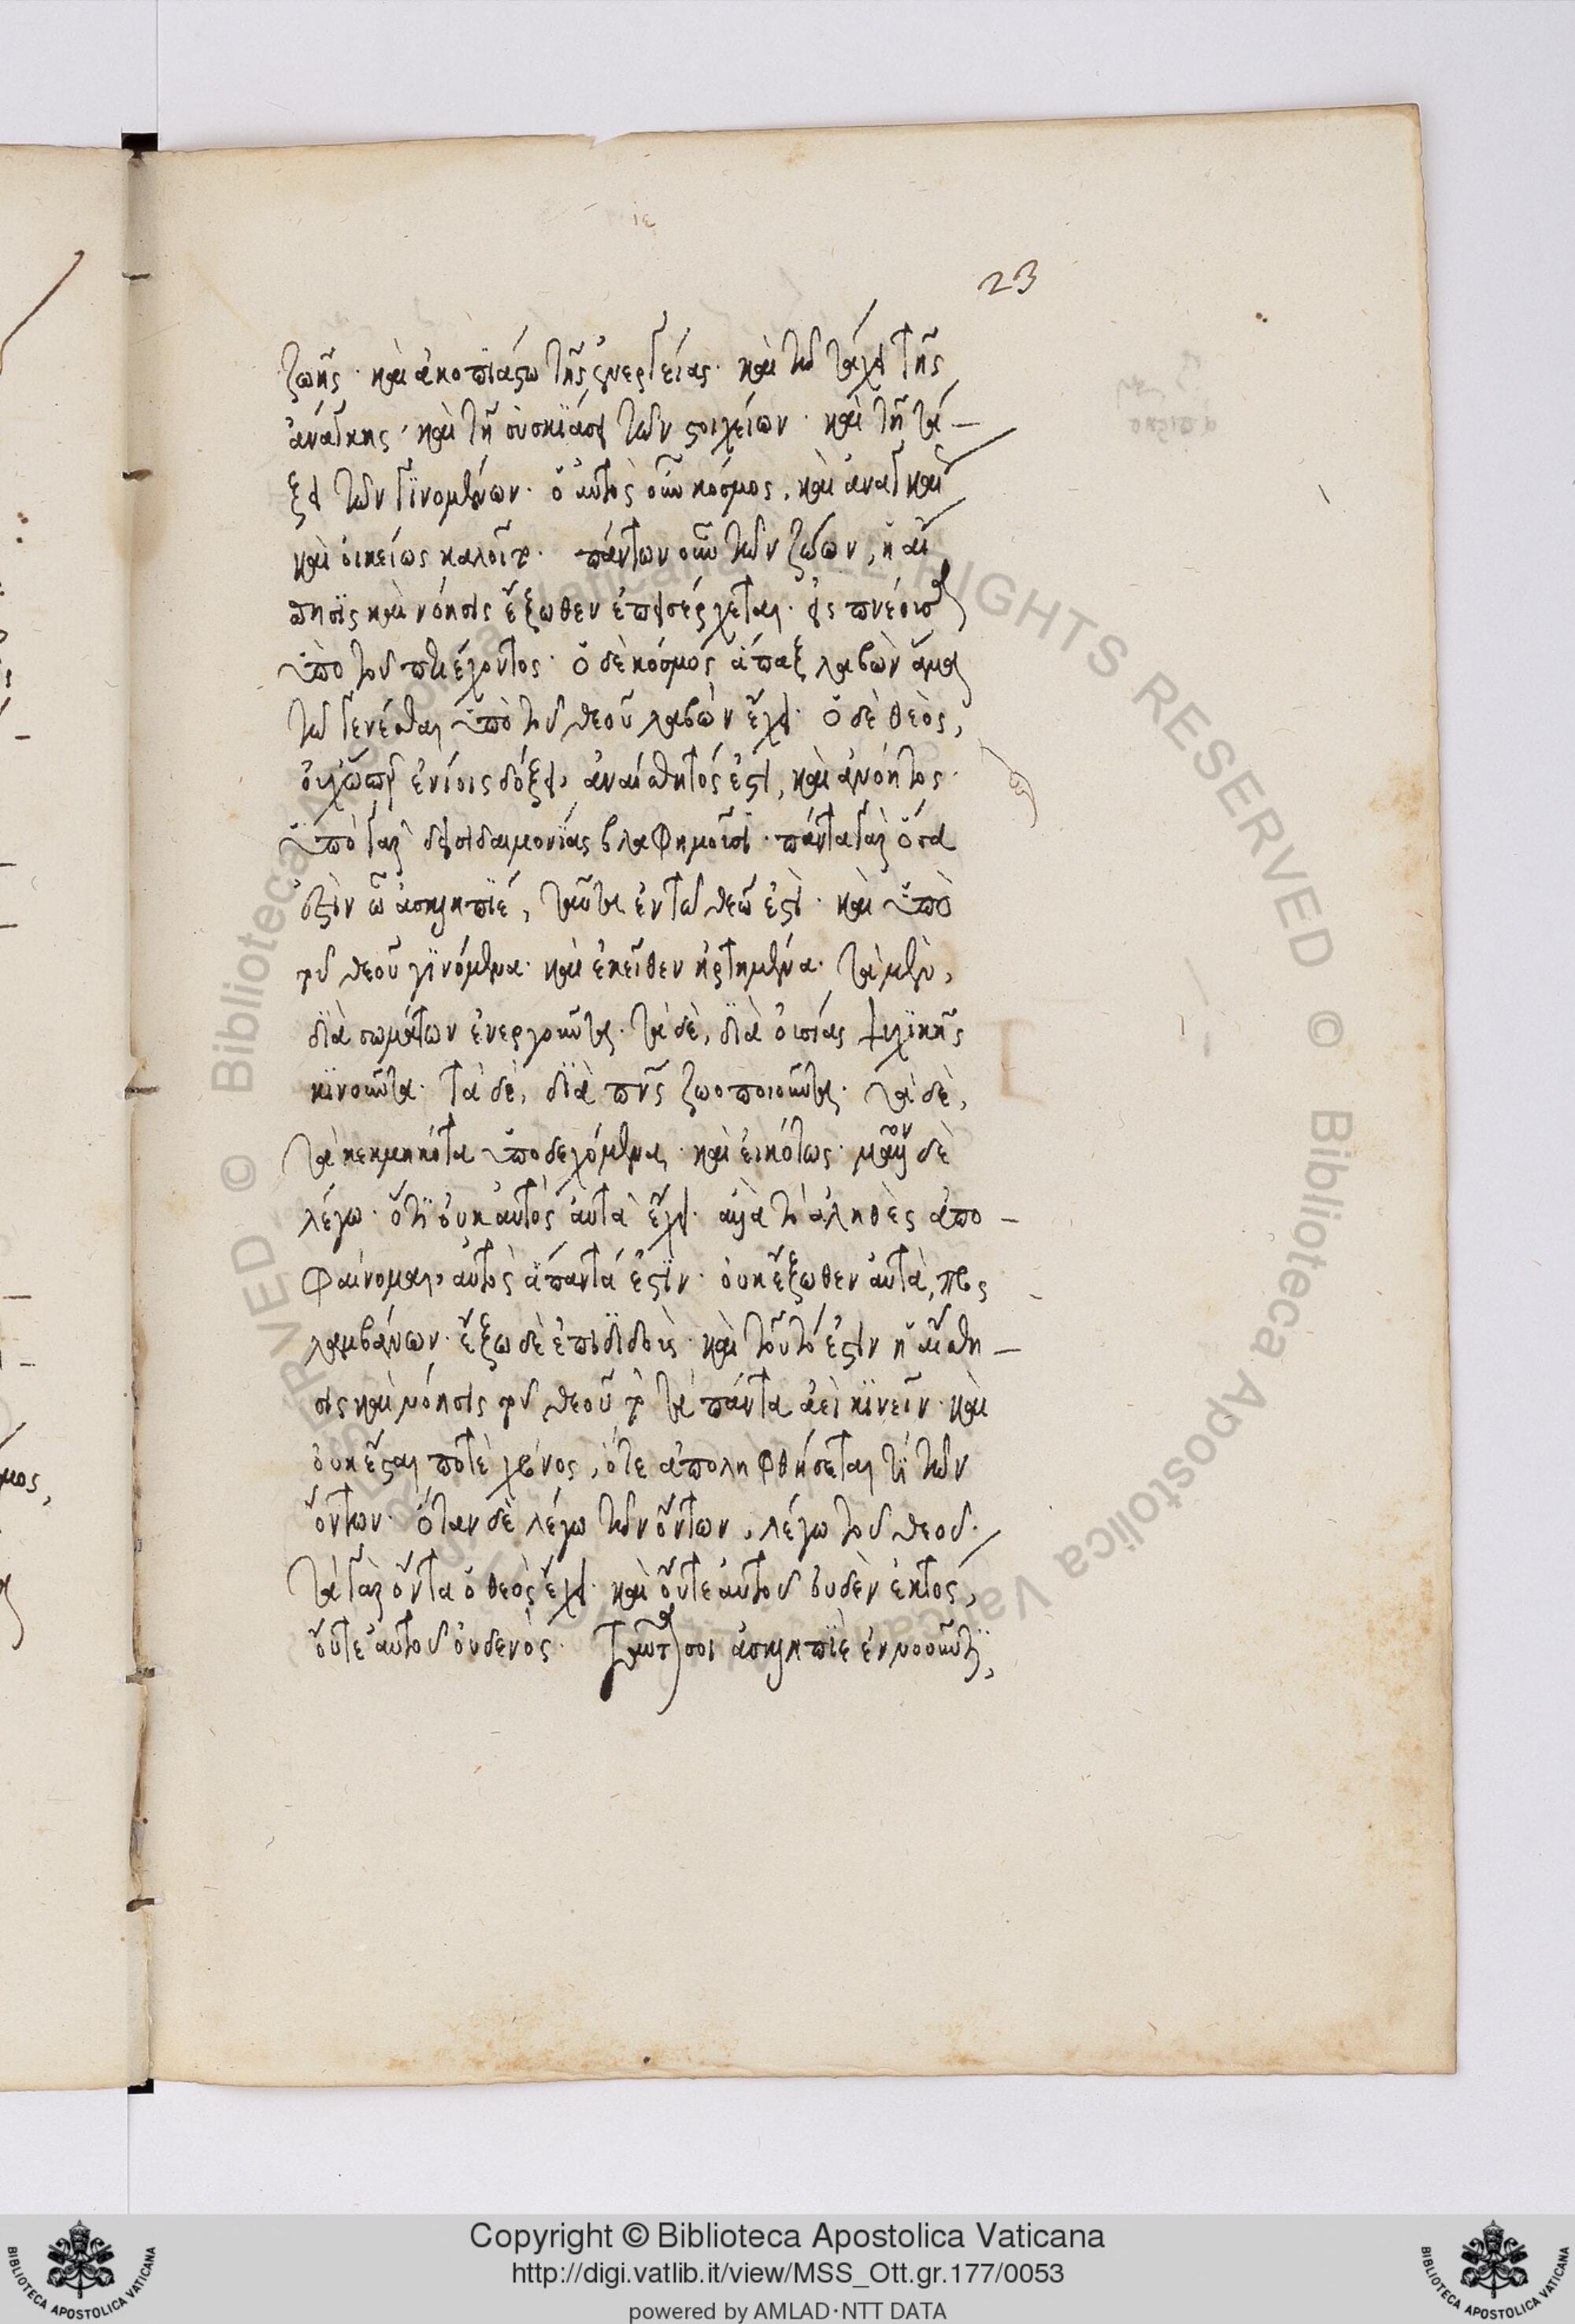 ιε
23
ζωῆς· καὶ ἀκοπϊάςω τῆς ἐνεργείας· καὶ τῶ τάχει τῆς
ἀνάγκης· καὶ τῆ συσκϊάσει τῶν στοιχείων· καὶ τῆ τά-
ξει τῶν γϊνομένων· ὁ αὐτὸς οὖν κόσμος, καὶ ἀναγκαί
καὶ οἰκείως καλοῖτο· πάντων οὖν τῶν ζώων, ἡ αἴ
σθησϊς καὶ νόησις ἔξωθεν ἐπεισέρχεται· εἰσπνέουσα
ὑπὸ τοῦ περιέχοντος· ὁ δὲ κόσμος ἅπαξ λαβὼν ἅμα
τῶ γενέσθαι ὑπὸ τοῦ θεοῦ λαβὼν ἔχει· ὁ δὲ θεὸς,
οὐχ ὥσπερ ἐνίοις δόξει, ἀναίσθητός ἐστι, καὶ ἀνόητος·
ὑπὸ γὰρ δεισιδαιμονίας βλασφημοῦσι· πάντα γὰρ ὅσα
ἐστὶν ὦ ἀσκληπϊέ, ταῦτα ἐν τῶ θεῶ ἐστί· καὶ ὑπὸ
τοῦ θεοῦ γϊνόμενα· καὶ ἐκεῖθεν ἠρτημένα· τὰ μὲν,
δϊὰ σωμάτων ἐνεργοῦντα· τὰ δὲ, δϊὰ οὐσίας ψυχϊκῆς
κϊνοῦντα· τὰ δὲ, δϊὰ πνς ζωοποιοῦντα· τὰ δὲ,
τὰ κεκμηκότα ὑποδεχόμενα· καὶ εἰκότως· μᾶλλον δὲ
λέγω· ὅτϊ οὐκ αὐτὸς αὐτὰ ἔχει· ἀλλὰ τὸ ἀληθὲς ἀπο-
φαίνομαι, αὐτὸς ἅπαντά ἐστϊν· οὐκ ἔξωθεν αὐτὰ, προς
λαμβάνων· ἔξω δὲ ἐπιδϊδοὺς· καὶ τοῦτό ἐστιν ἡ αἴσθη-
σις καὶ νόησις τοῦ θεοῦ τὸ τὰ πάντα ἀεὶ κϊνεῖν· καὶ
οὐκ ἔσται ποτὲ χρόνος, ὅτε ἀπολειφθήσεται τϊ τῶν
ὄντων· ὅταν δὲ λέγω τῶν ὄντων, λέγω τοῦ θεοῦ·
τὰ γὰρ ὄντα ὁ θεὸς ἔχει· καὶ οὔτε αὐτοῦ οὐδὲν ἐκτὸς,
οὔτε αὐτοῦ οὐδενός· Ταῦτά σοι ἀσκληπϊὲ ἐννοοῦντϊ,
Copyright © Biblioteca Apostolica Vaticana
http://digi.vatlib.it/view/MSS_Ott.gr.177/0053
powered by AMLAD·NTT DATA